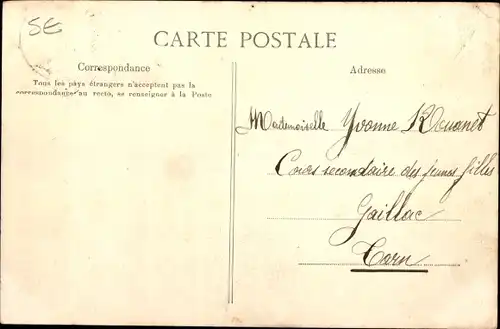 5E
CARTE POSTALE
Correspondance
Tous les pays étrangers n'acceptent pas la
correspondance au recto, se renseigner à la Poste
Adresse
Mademoiselle Yvonne Rouanet
Cours secondaire des jeunes filles
Gaillac
Tarn